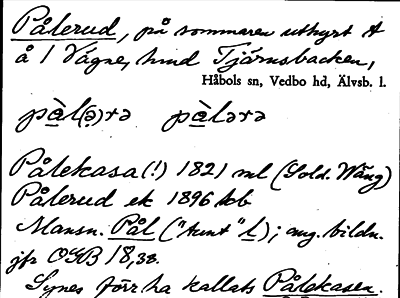 Pålerud, på sommaren uthyrt t
å 1 Vägne, hmd Tjärnsbacken,
Håbols sn, Vedbo hd, Älvsb. l.
pàl(ə)rə pàlərə
Pålekasa (!) 1821 ml (Sold. Wäng)
Pålerud ek 1896 kb
Mansn. Pål ("tunt" l); ang. bildn.
jfr OGB 18,38.
Synes förr ha kallats Pålekasen.